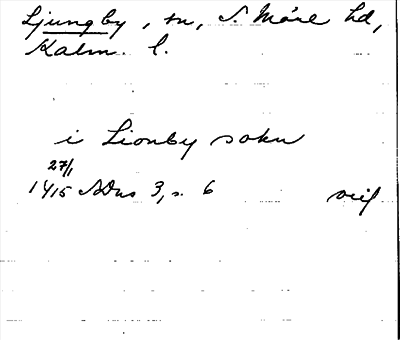 Ljungby, sn, S. Möre hd,
Kalm. l.
i Lionby sokn
27/1
1415 SDns 3, s. 6